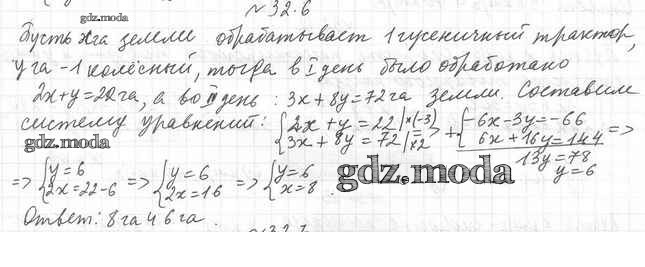 №32.6
gdz.moda
Пусть x га земли обрабатывает 1 гусеничный трактор,
y га - 1 колёсный, тогда в I день было обработано
2x+y=22га, а во II день: 3x+8y=72га земли. Составим
систему уравнений: {2x+y=22 |×(-3) 3x+8y=72 |×2 => +{-6x-3y=-66 6x+16y=144 =>
gdz.moda
13y=78
y=6
=> {y=6 2x=22-6 => {y=6 2x=16 => {y=6 x=8.
gdz.moda
Ответ: 8 га и 6 га.
gdz.moda
№32.7